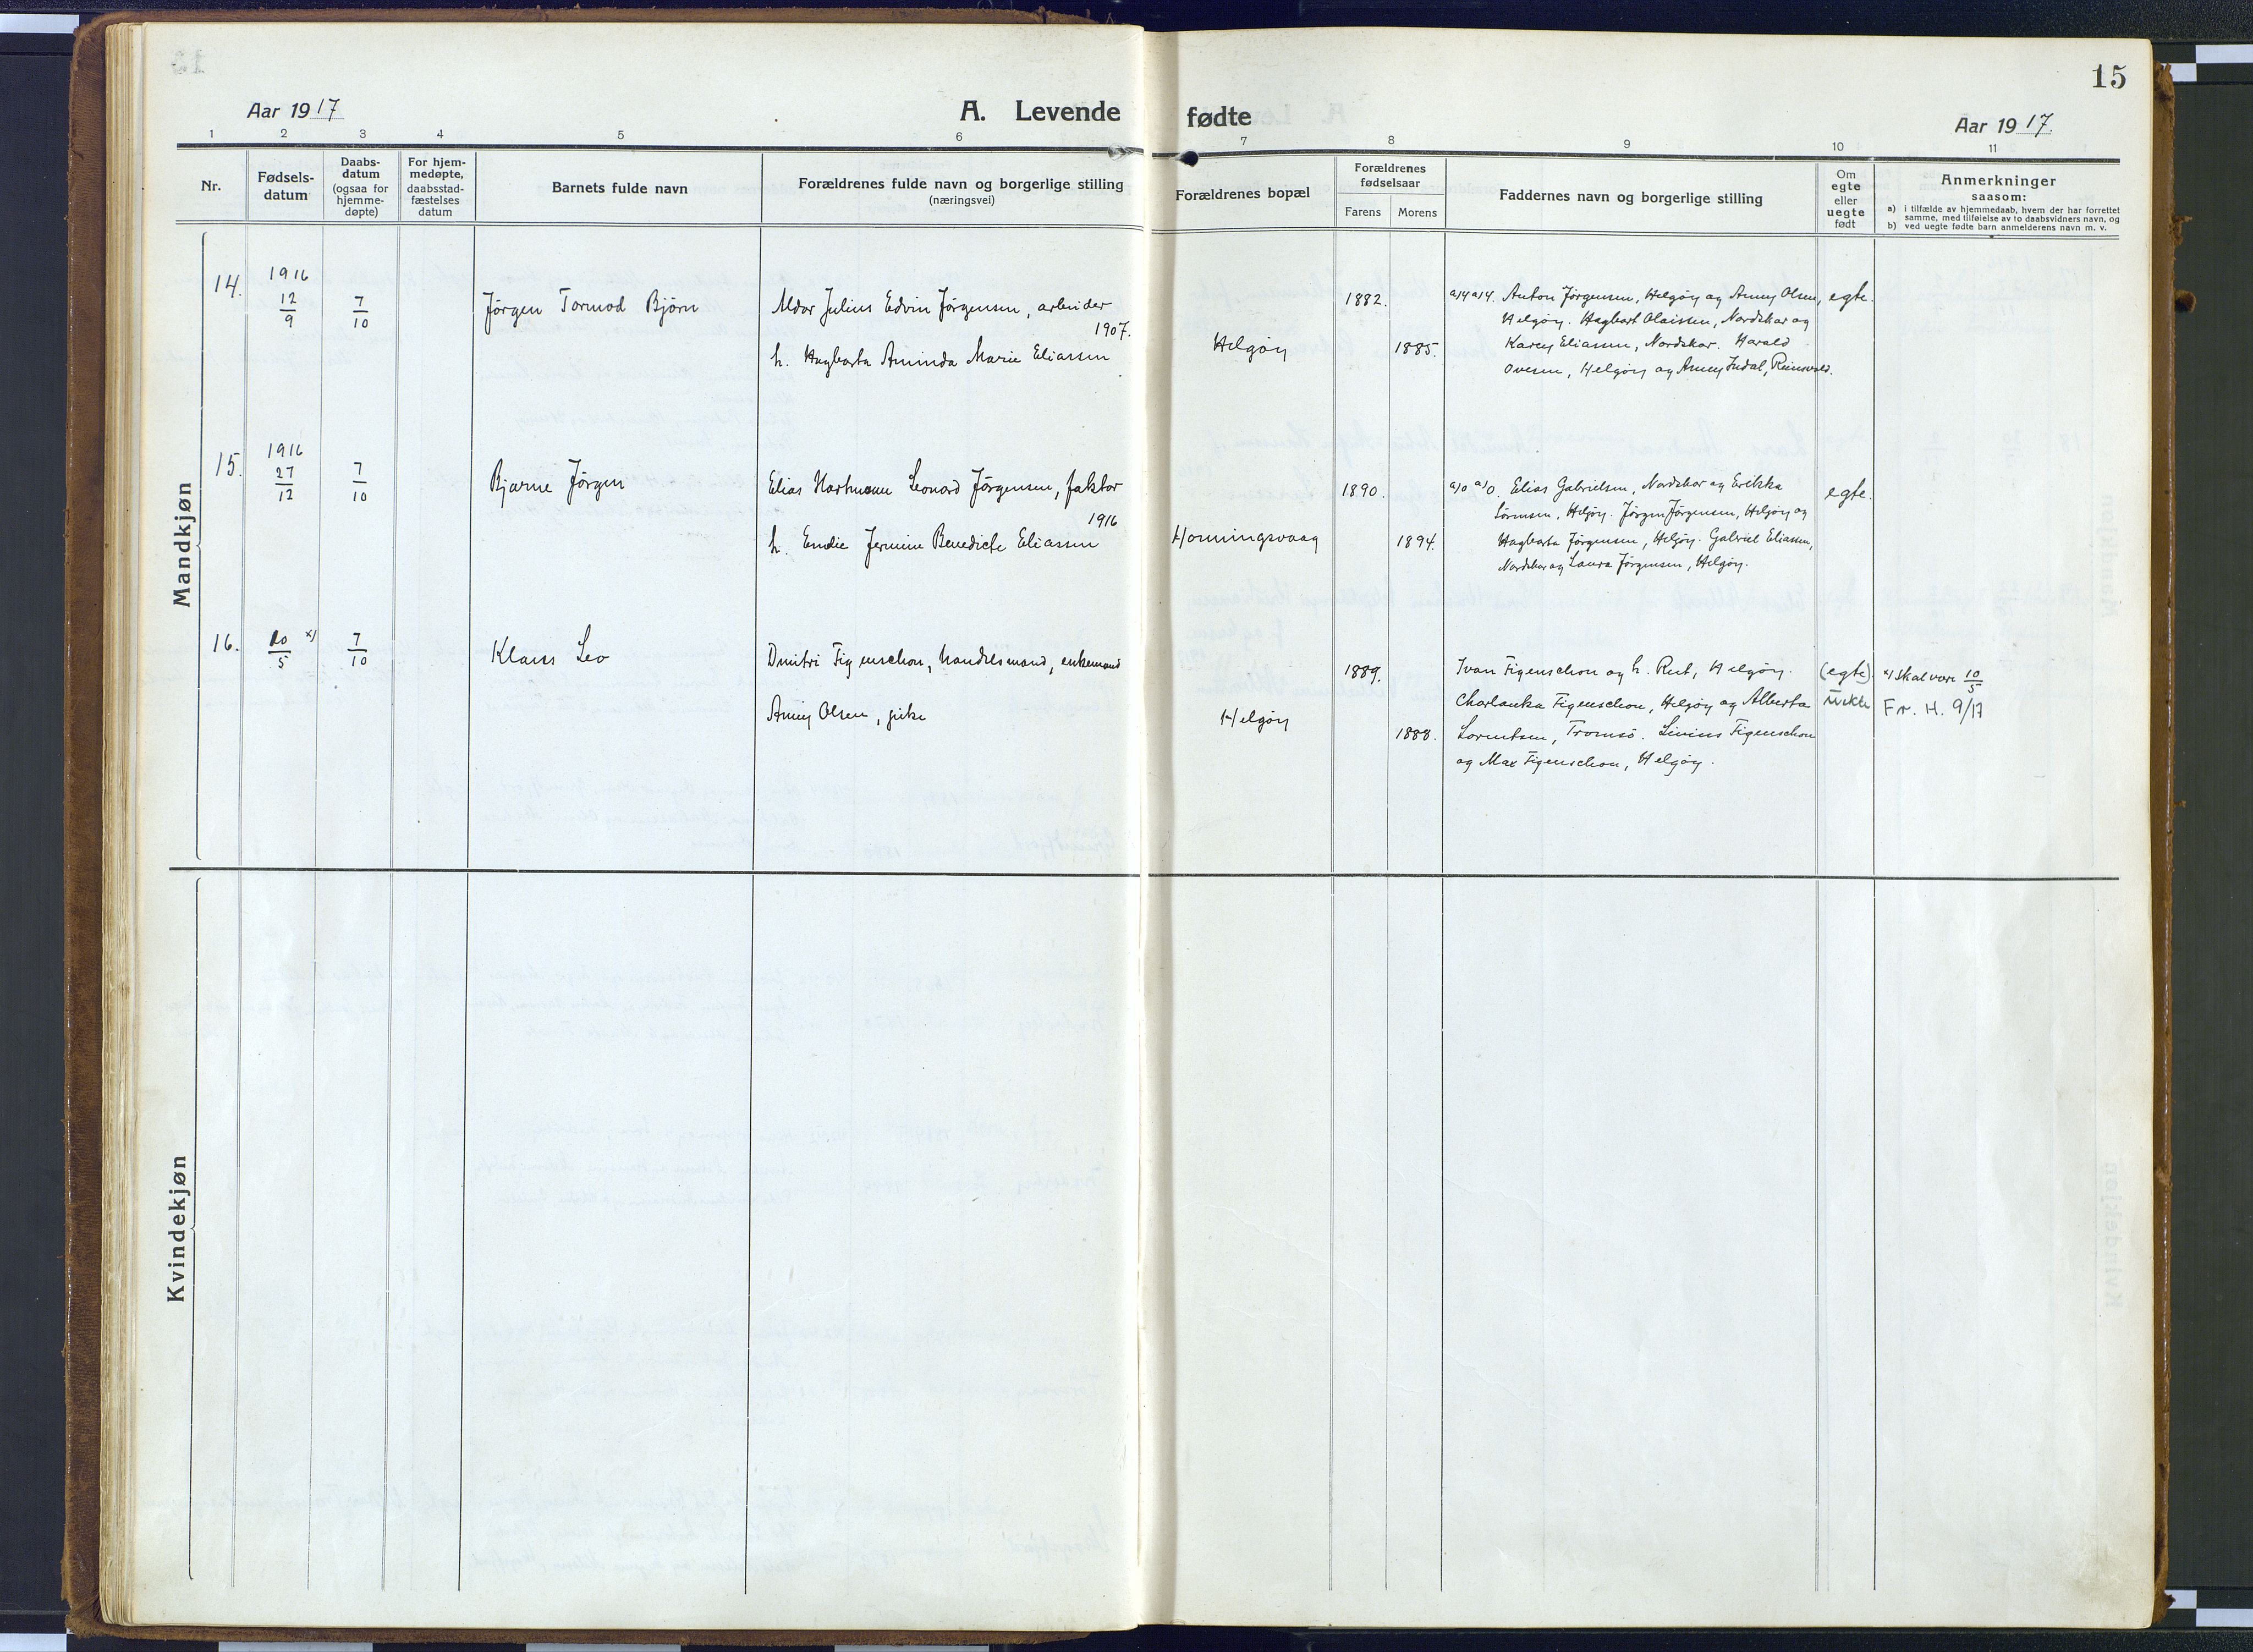 15
Aar 1917
A. Levende fødte
Aar 1917.
1 2 3 4 5 6 7 8 9 10 11
Nr.
Fødsels-
datum
Daabs-
datum
(ogsaa for
hjemme-
døpte)
For hjem-
medøpte,
daabsstad-
fæstelses
datum
Barnets fulde navn
Forældrenes fulde navn og borgerlige stilling
(næringsvei)
Forældrenes bopæl
Forældrenes
fødselsaar
Farens Morens
Faddernes navn og borgerlige stilling
Om
egte
eller
uegte
født
Anmerkninger
saasom:
a) i tilfælde av hjemmedaab, hvem der har forrettet
samme, med tilføielse av to daabsvidners navn, og
b) ved uegte fødte barn anmelderens navn m. v.
Mandkjøn
14.
1916
12/9
7/10
Jørgen Tormod Bjørn
Aldor Julius Edvin Jørgensen, arbeider
1907.
h. Hagbarta Aminda Marie Eliassen
Helgøy
1882.
1885.
Anton Jørgensen, Helgøy og Anny Olsen,
Helgøy. Hagbart Olaissen, Nordskar og
Karey Eliassen, Nordskar. Harald
Ovesen, Helgøy og Anny Indal, Reinsvold.
egte.
15.
1916
27/12
7/10
Bjarne Jørgen
Elias Hartmann Leonard Jørgensen, faktor
1916
h. Emelie Jermine Benedicte Eliassen
Honningsvaag
1890.
1894.
Elias Gabrielsen, Nordskar og Erikka
Sørensen, Helgøy. Jørgen Jørgensen, Helgøy og
Hagbarta Jørgensen, Helgøy. Gabriel Eliassen,
Nordskar og Laura Jørgensen, Helgøy.
egte.
16.
20/5 x)
7/10
Klaus Leo
Dmitri Figenschou, handelsmand, enkemand
Anny Olsen, pike
Helgøy
1889.
1888.
Ivan Figenschou og h. Rut, Helgøy.
Charlanka Figenschou, Helgøy og Alberta
Lorentsen, Tromsö. Livius Figenschou
og Max Figenschou, Helgøy.
(egte)
uekte
x) skal være 10/5
Fr. H. 9/17
Kvindekjøn